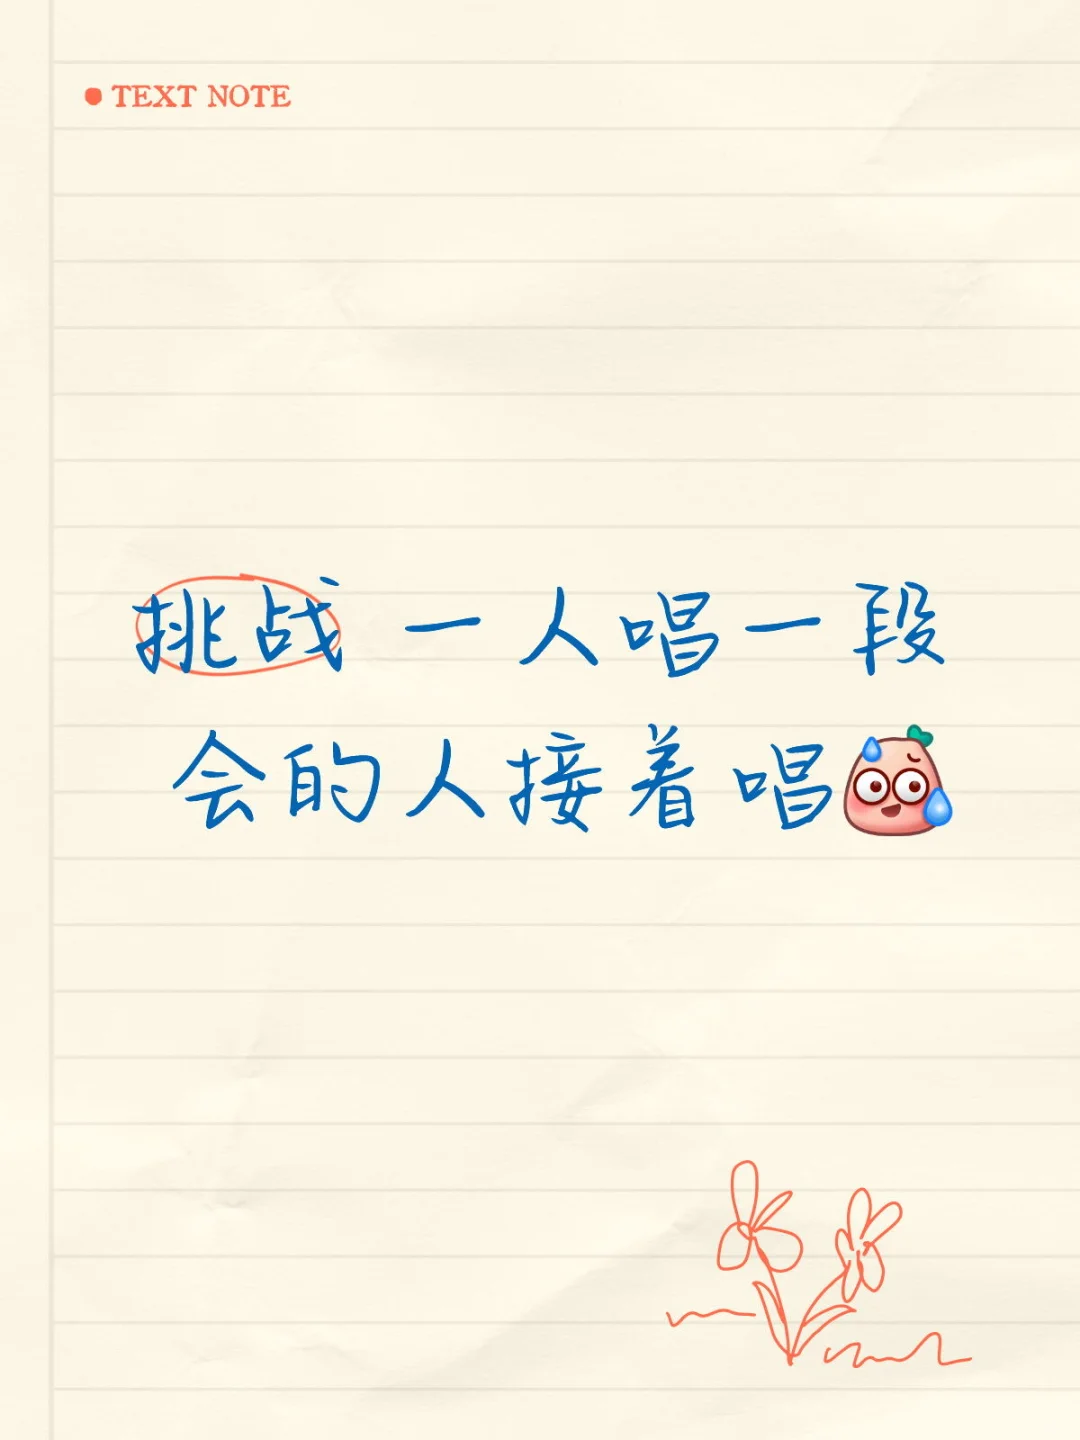 TEXT NOTE
挑战 一人唱一段
会的人接着唱